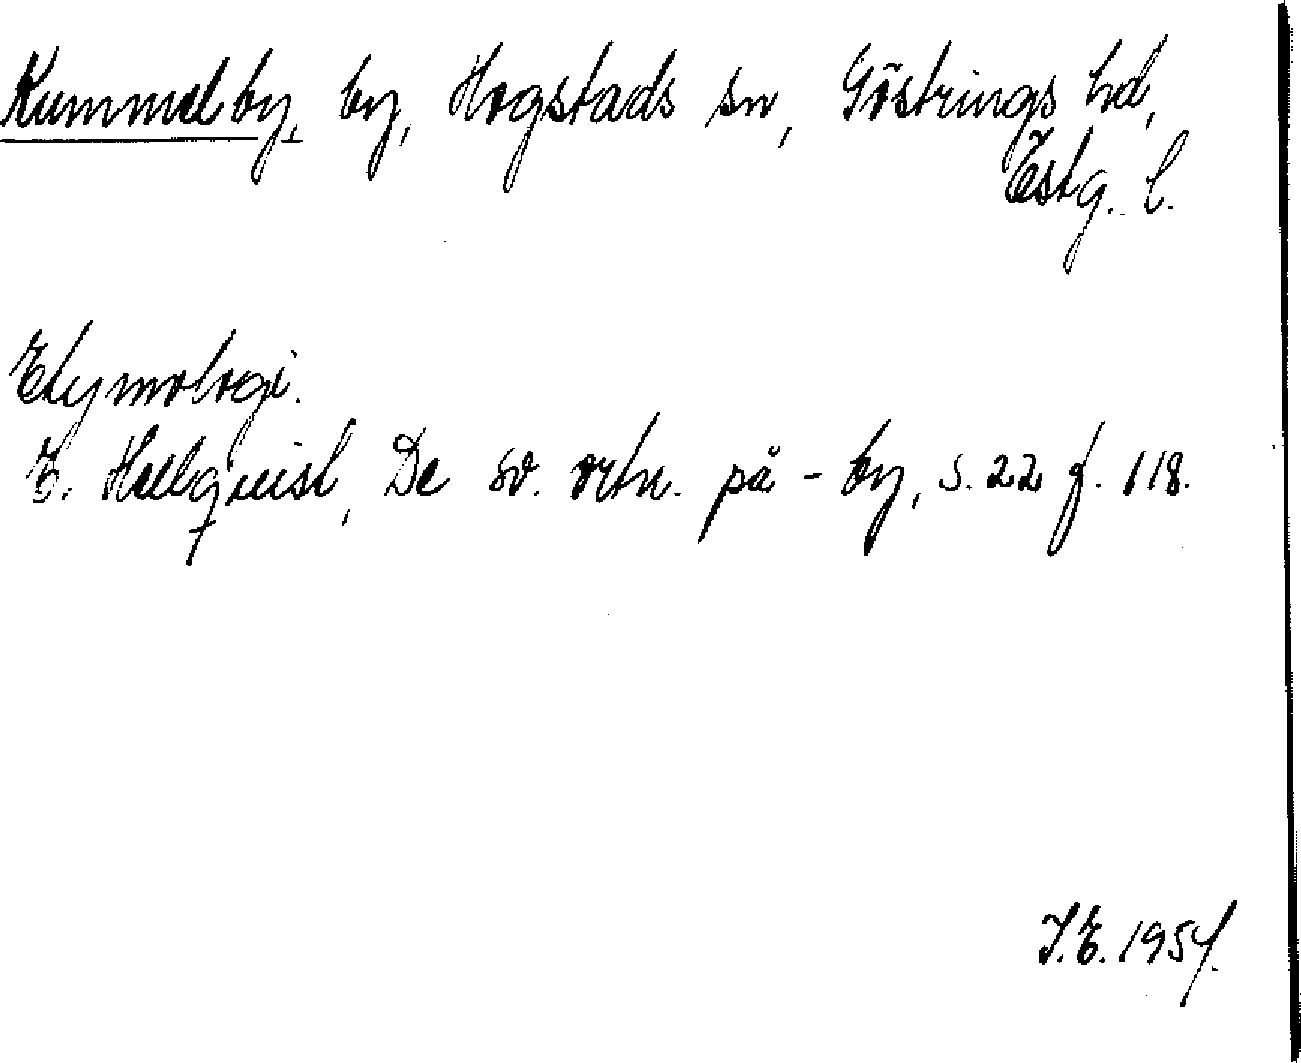 Kummelby, by, Hogstads sn, Göstrings hd,
Östg. l.
Etymologi.
E. Hellquist, De sv. ortn. på -by, s. 22 f. 118.
I.E. 1954.